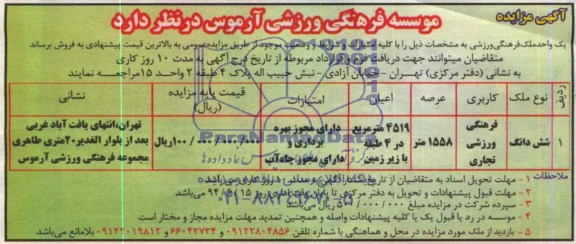 آگهی مزایده
موسسه فرهنگی ورزشی آرموس درنظر دارد
یک واحدملک فرهنگی ورزشی به مشخصات ذیل را با کلیه امتیازات و شرایط و وضعیت موجود از طریق مزایده عمومی به بالاترین قیمت پیشنهادی به فروش برساند
متقاضیان میتوانند جهت دریافت فرم و قرارداد مربوطه از تاریخ درج آگهی به مدت ۱۰ روز کاری
به نشانی (دفتر مرکزی) تهران - خیابان آزادی - نبش حبیب اله پلاک ۴ طبقه ۲ واحد ۱۵ مراجعه نمایند
ردیف نوع ملک کاربری عرصه اعیان امتیازات قیمت پایه مزایده (ریال) نشانی
۱ شش دانگ فرهنگی ورزشی تجاری ۱۵۵۸ متر ۴۵۱۹ مترمربع در ۴ طبقه با زیرزمین دارای مجوز بهره برداری و دارای مجوز چاه آب ۱۰۰/۰۰۰/۰۰۰/۰۰۰ریال تهران،انتهای یافت آباد غربی بعد از بلوار الغدیر۲۰متری طاهری مجموعه فرهنگی ورزشی آرموس
ParsNamadData
۰۲۱-۸۸۳۴۹۶۷۰-۵
ملاحظات
۱ - مهلت تحویل اسناد به متقاضیان از تاریخ
۲ - مهلت قبول پیشنهادات و تحویل به دفتر مرکزی تا پایان وقت اداری روز ۹۴/۶/۱۵ می باشد
۳ - سپرده شرکت در مزایده مبلغ ریال می باشد
۴ - موسسه در رد یا قبول یک یا کلیه پیشنهادات واصله و همچنین تمدید مهلت مزایده مجاز و مختار است
۵ - بازدید از ملک مورد مزایده در محل و هماهنگی با شماره تلفن ۰۹۱۲۲۸۰۴۸۵۶ و ۶۶۰۴۲۷۳۴ و ۰۹۱۲۲۰۱۹۸۱۲ بلامانع می باشد